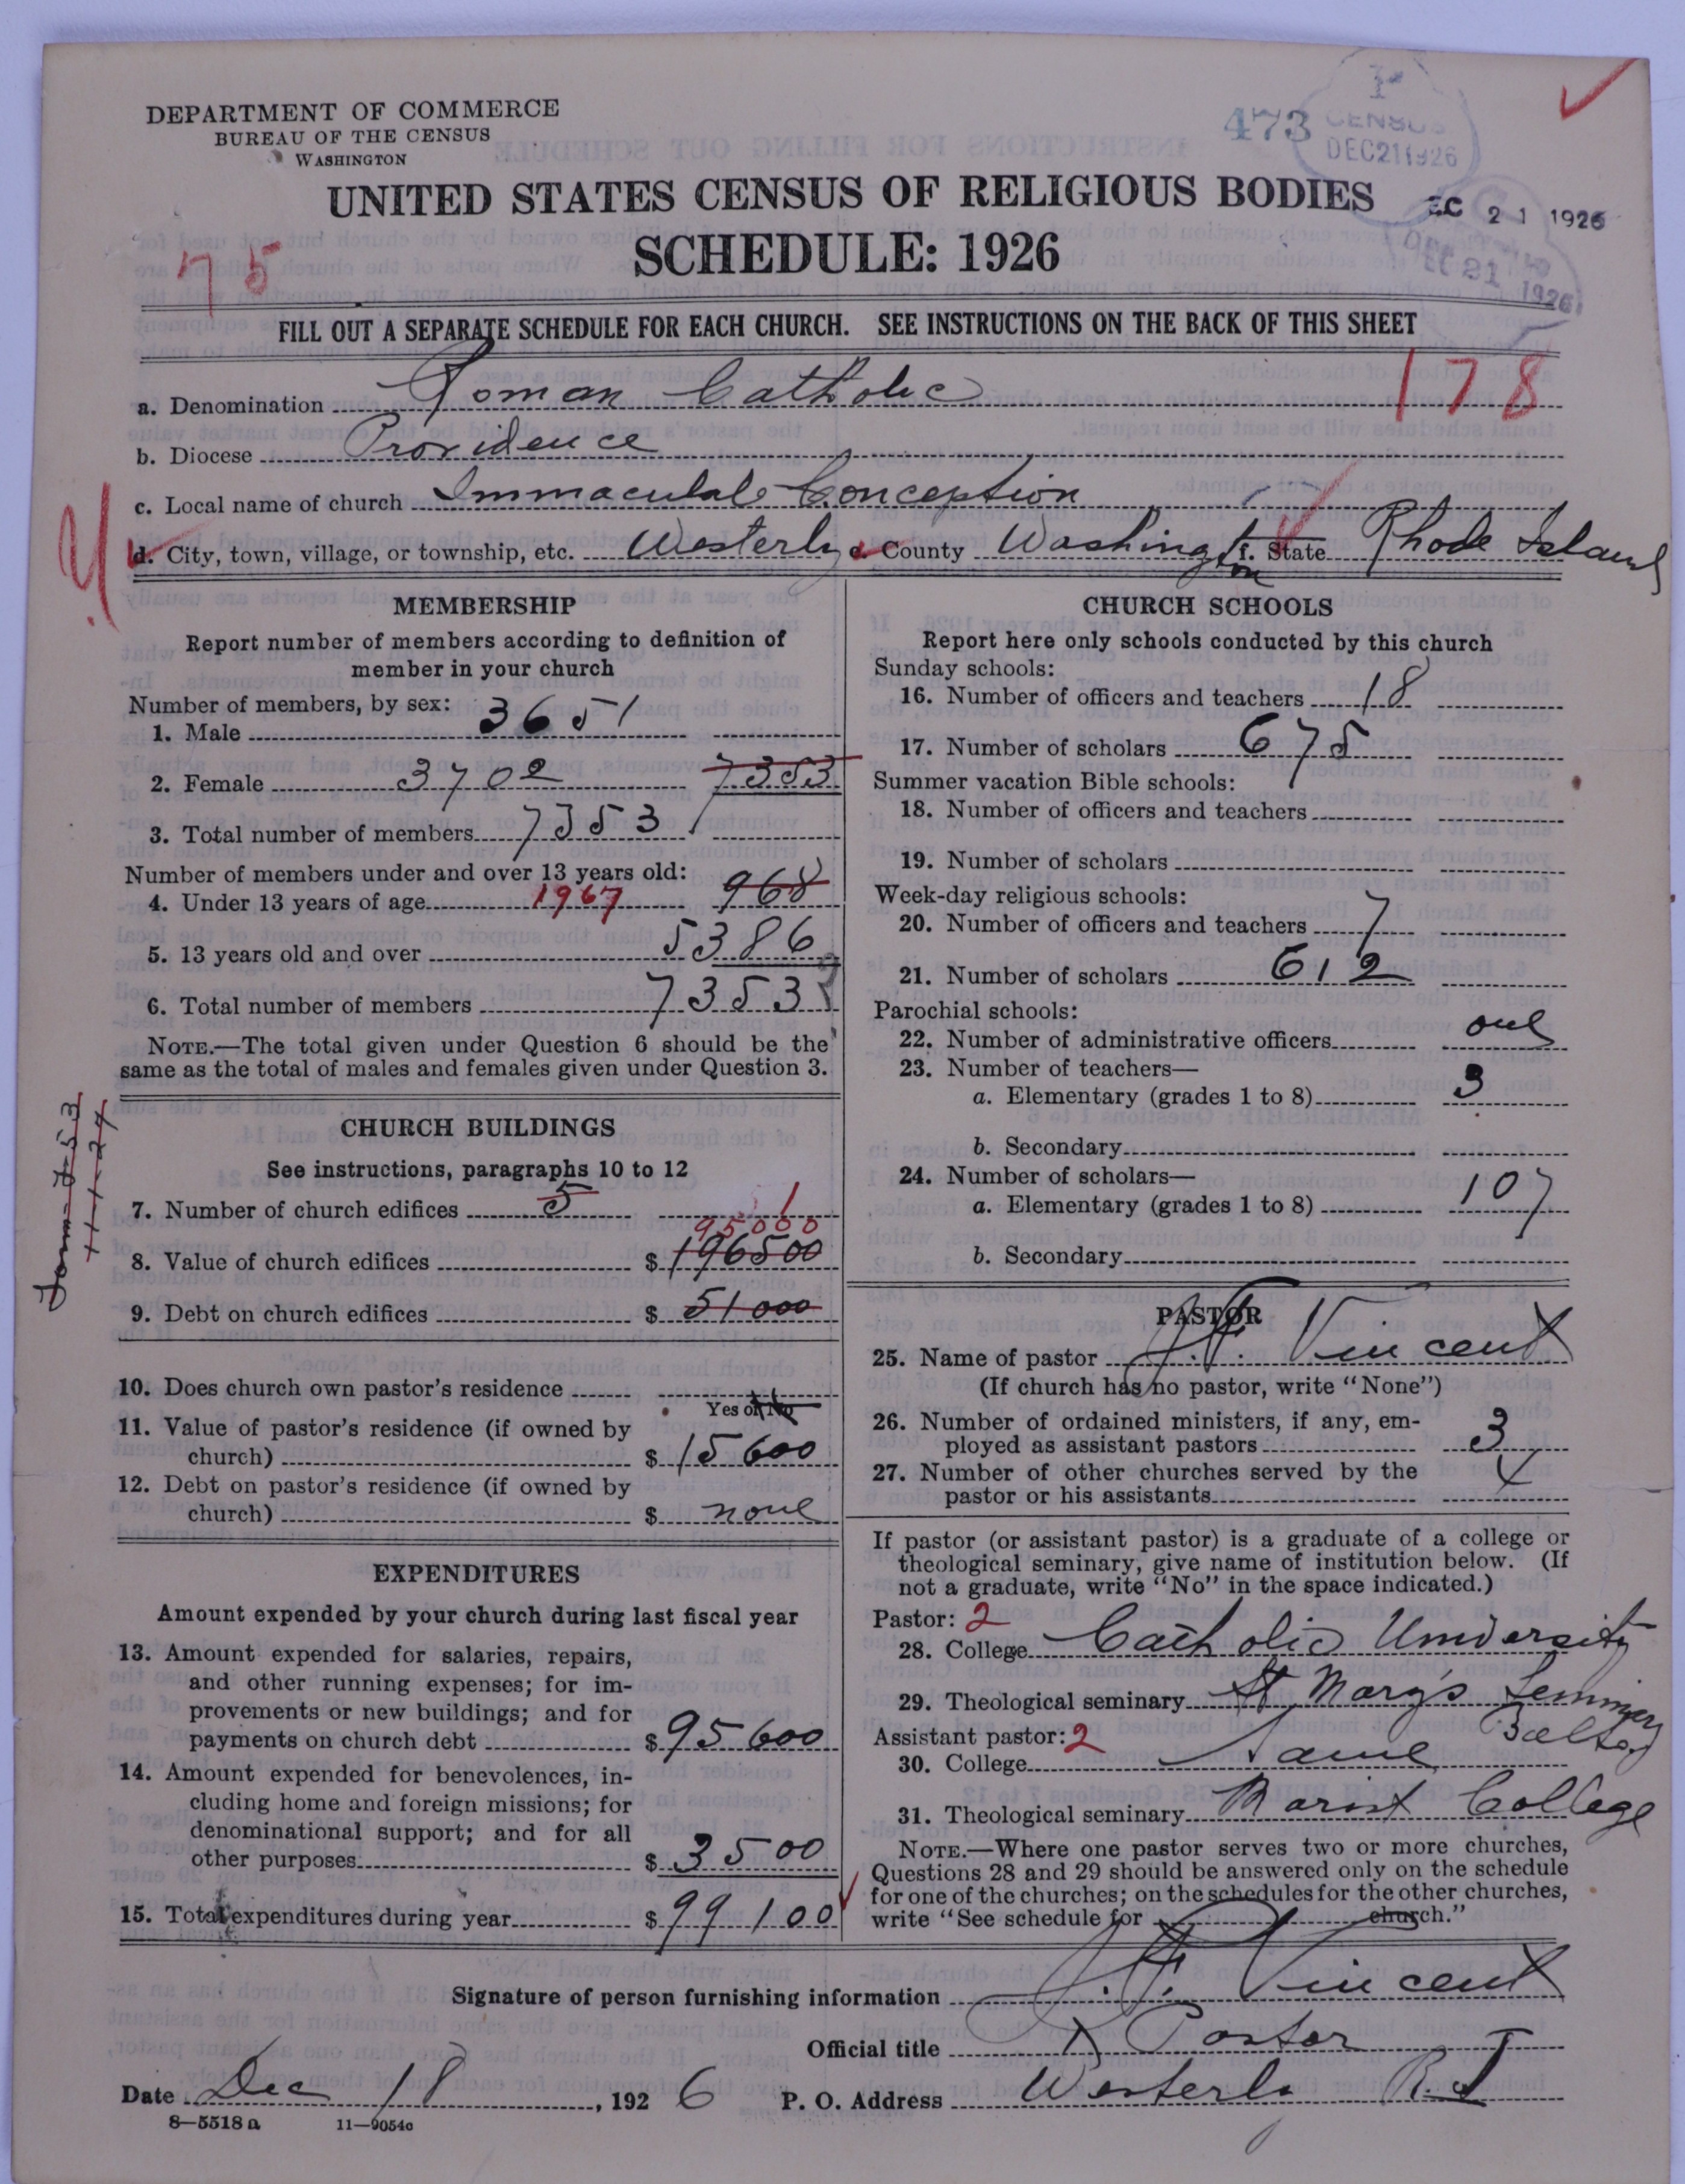 DEPARTMENT OF COMMERCE
BUREAU OF THE CENSUS
WASHINGTON
473
CENSUS
DEC 21 1926
UNITED STATES CENSUS OF RELIGIOUS BODIES
EC 21 1926
SCHEDULE: 1926
75
21
1926
FILL OUT A SEPARATE SCHEDULE FOR EACH CHURCH. SEE INSTRUCTIONS ON THE BACK OF THIS SHEET
178
a. Denomination Roman Catholic
b. Diocese Providence
c. Local name of church Immaculate Conception
d. City, town, village, or township, etc. Westerly e. County Washington f. State Rhode Island
MEMBERSHIP
Report number of members according to definition of
member in your church
Number of members, by sex:
1. Male 3651
2. Female 3702 7353
3. Total number of members 7353
Number of members under and over 13 years old:
4. Under 13 years of age 1967 968
5. 13 years old and over 5386
6. Total number of members 7353
NOTE.—The total given under Question 6 should be the
same as the total of males and females given under Question 3.
CHURCH BUILDINGS
See instructions, paragraphs 10 to 12
7. Number of church edifices 5 1
95000
8. Value of church edifices $ 196500
9. Debt on church edifices $ 51000
10. Does church own pastor's residence
Yes or No
11. Value of pastor's residence (if owned by
church) $ 15600
12. Debt on pastor's residence (if owned by
church) $ none
EXPENDITURES
Amount expended by your church during last fiscal year
13. Amount expended for salaries, repairs,
and other running expenses; for im-
provements or new buildings; and for
payments on church debt $ 95600
14. Amount expended for benevolences, in-
cluding home and foreign missions; for
denominational support; and for all
other purposes $ 3500
15. Total expenditures during year $ 99100
CHURCH SCHOOLS
Report here only schools conducted by this church
Sunday schools:
16. Number of officers and teachers 18
17. Number of scholars 675
Summer vacation Bible schools:
18. Number of officers and teachers
19. Number of scholars
Week-day religious schools:
20. Number of officers and teachers 7
21. Number of scholars 612
Parochial schools:
22. Number of administrative officers one
23. Number of teachers—
a. Elementary (grades 1 to 8) 3
b. Secondary
24. Number of scholars—
a. Elementary (grades 1 to 8) 107
b. Secondary
PASTOR
25. Name of pastor Vincent
(If church has no pastor, write "None")
26. Number of ordained ministers, if any, em-
ployed as assistant pastors 3
27. Number of other churches served by the
pastor or his assistants
If pastor (or assistant pastor) is a graduate of a college or
theological seminary, give name of institution below. (If
not a graduate, write "No" in the space indicated.)
Pastor: 2
28. College Catholic University
29. Theological seminary St Mary's Seminary
Balto.
Assistant pastor: 2
30. College Same
31. Theological seminary Marist College
NOTE.—Where one pastor serves two or more churches,
Questions 28 and 29 should be answered only on the schedule
for one of the churches; on the schedules for the other churches,
write "See schedule for church."
Form 8-53
11-1-27
Signature of person furnishing information Vincent
Official title Pastor
Date Dec 18, 1926 P. O. Address Westerly R.I
8—5518 a 11—9054c